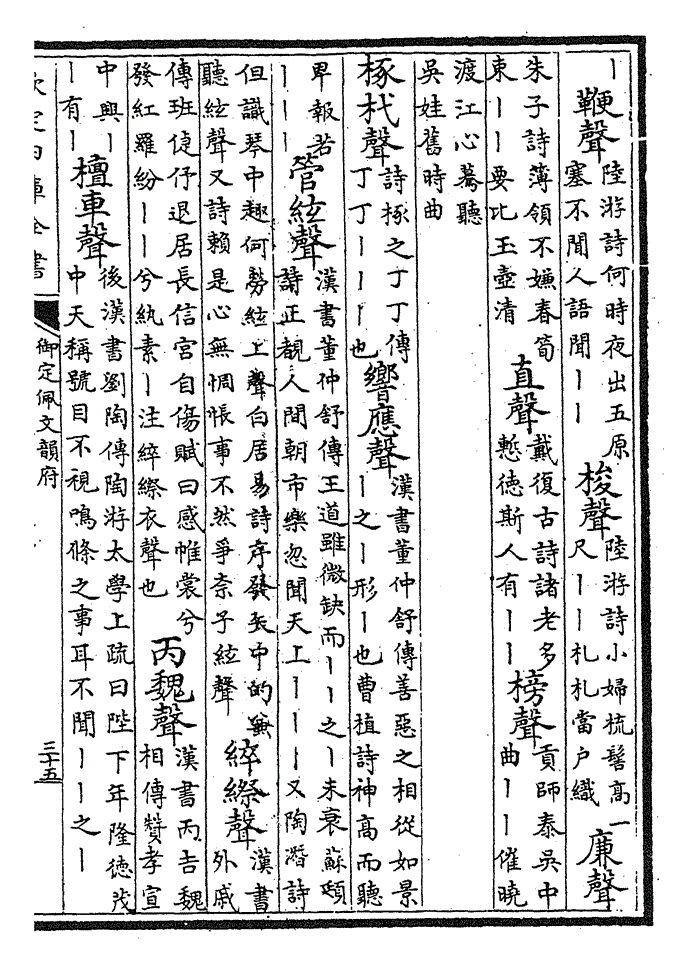 ｜鞭聲陸游詩何時夜出五原
塞不聞人語聞｜｜
梭聲陸游詩小婦梳髻高一
尺｜｜札札當户織
廉聲
朱子詩薄領不嫌春筍
束｜｜要比玉壺清
直聲戴復古詩諸老多
慙徳斯人有｜｜
榜聲貢師泰吳中
曲｜｜催曉
渡江心驀聽
吳娃舊時曲
椓杙聲詩椓之丁丁傳
丁丁｜｜｜也
響應聲漢書董仲舒傳善惡之相從如景
｜之｜形｜也曹植詩神高而聽
卑報若
｜｜｜
管絃聲漢書董仲舒傳王道雖微缺而｜｜之｜未衰蘇頲
詩正覩人間朝市樂忽聞天上｜｜｜又陶潛詩
但識琴中趣何勞絃上聲白居易詩序發矢中的無
聽絃聲又詩賴是心無惆悵事不然爭奈子絃聲
綷縩聲漢書
外戚
傳班倢伃退居長信宮自傷賦曰感帷裳兮
發紅羅紛｜｜兮紈素｜注綷縩衣聲也
丙魏聲漢書丙吉魏
相傳贊孝宣
中興｜
｜有｜
檀車聲後漢書劉陶傳陶游太學上疏曰陛下年隆徳茂
中天稱號目不視鳴條之事耳不聞｜｜之｜
欽定四庫全書
御定佩文韻府
三十五